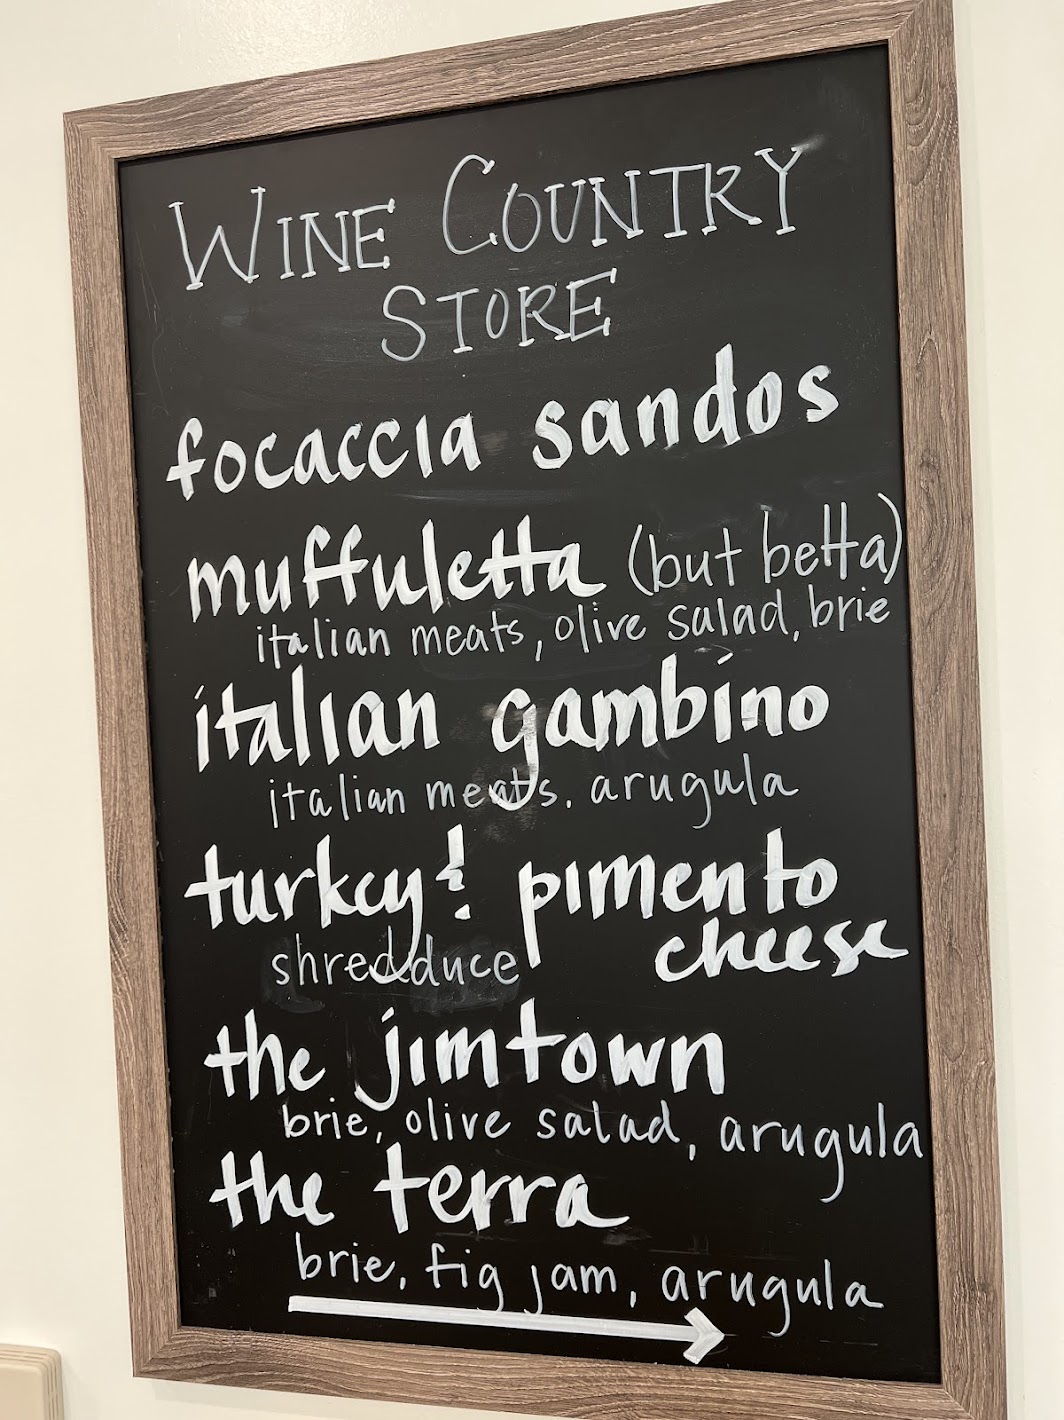 WINE COUNTRY
STORE
focaccia sandos
muffuletta (but betta)
italian meats, olive salad, brie
italian gambino
italian meats, arugula
turkey & pimento
cheese
shredduce
the jimtown
brie, olive salad, arugula
the terra
brie, fig jam, arugula